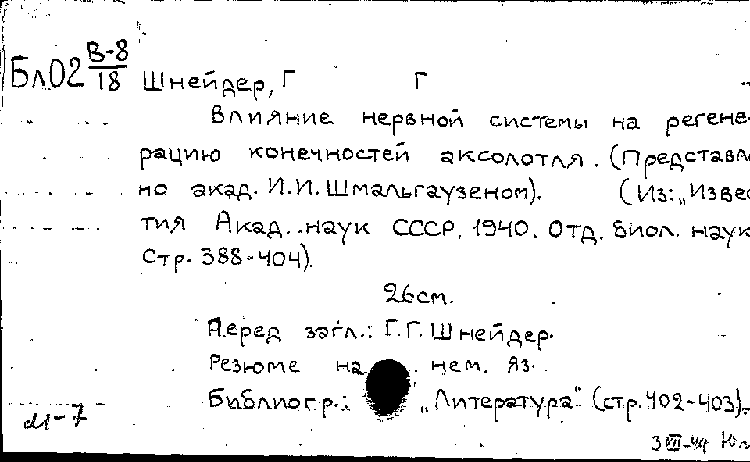 Бл02 В-8/18 Шнейдер, Г Г
Влияние нервной системы на регене-
рацию конечностей аксолотля. (Представле-
но акад. И.И. Шмальгаузеном). (Из: „Извес-
тия Акад. наук СССР, 1940. Отд. биол. наук
Стр. 388-404).
26см.
Перед загл.: Г.Г. Шнейдер.
Резюме на нем. яз.
Библиогр.: „Литература" (стр. 402-403).
м-7
3 VII-47